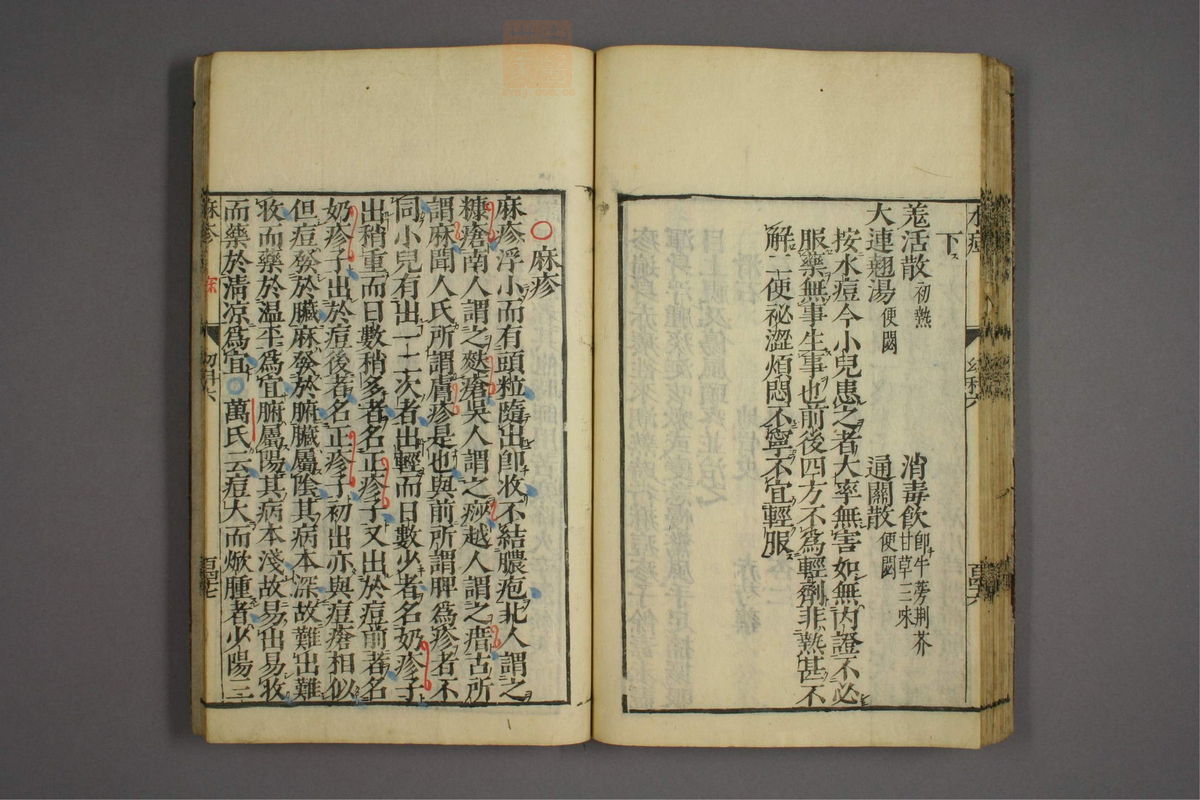 水痘
幼科六
下
羗活散初熱 消毒飲即牛蒡荆芥甘草三味
大連翹湯便閟 通關散便閟
按水痘今小兒患之者大率無害如無內證不必
服藥無事生事也前後四方不爲輕劑非熱甚不
解二便祕澀煩悶不寧不宜輕服
麻疹
麻疹浮小而有頭粒隨出即收不結膿疱北人謂之
糠瘡南人謂之麩瘡吳人謂之痧越人謂之瘄古所
謂麻聞人氏所謂膚疹是也與前所謂脾爲疹者不
同小兒有出一二次者出輕而日數少者名奶疹子
出稍重而日數稍多者名正疹子又出於痘前者名
奶疹子出於痘後者名正疹子初出亦與痘瘡相似
但痘發於臟麻發於腑臟屬陰其病本深故難出難
收而藥於温平爲宜腑屬陽其病本淺故易出易收
而藥於清凉爲宜萬氏云痘大而焮腫者少陽三
麻疹
幼科六